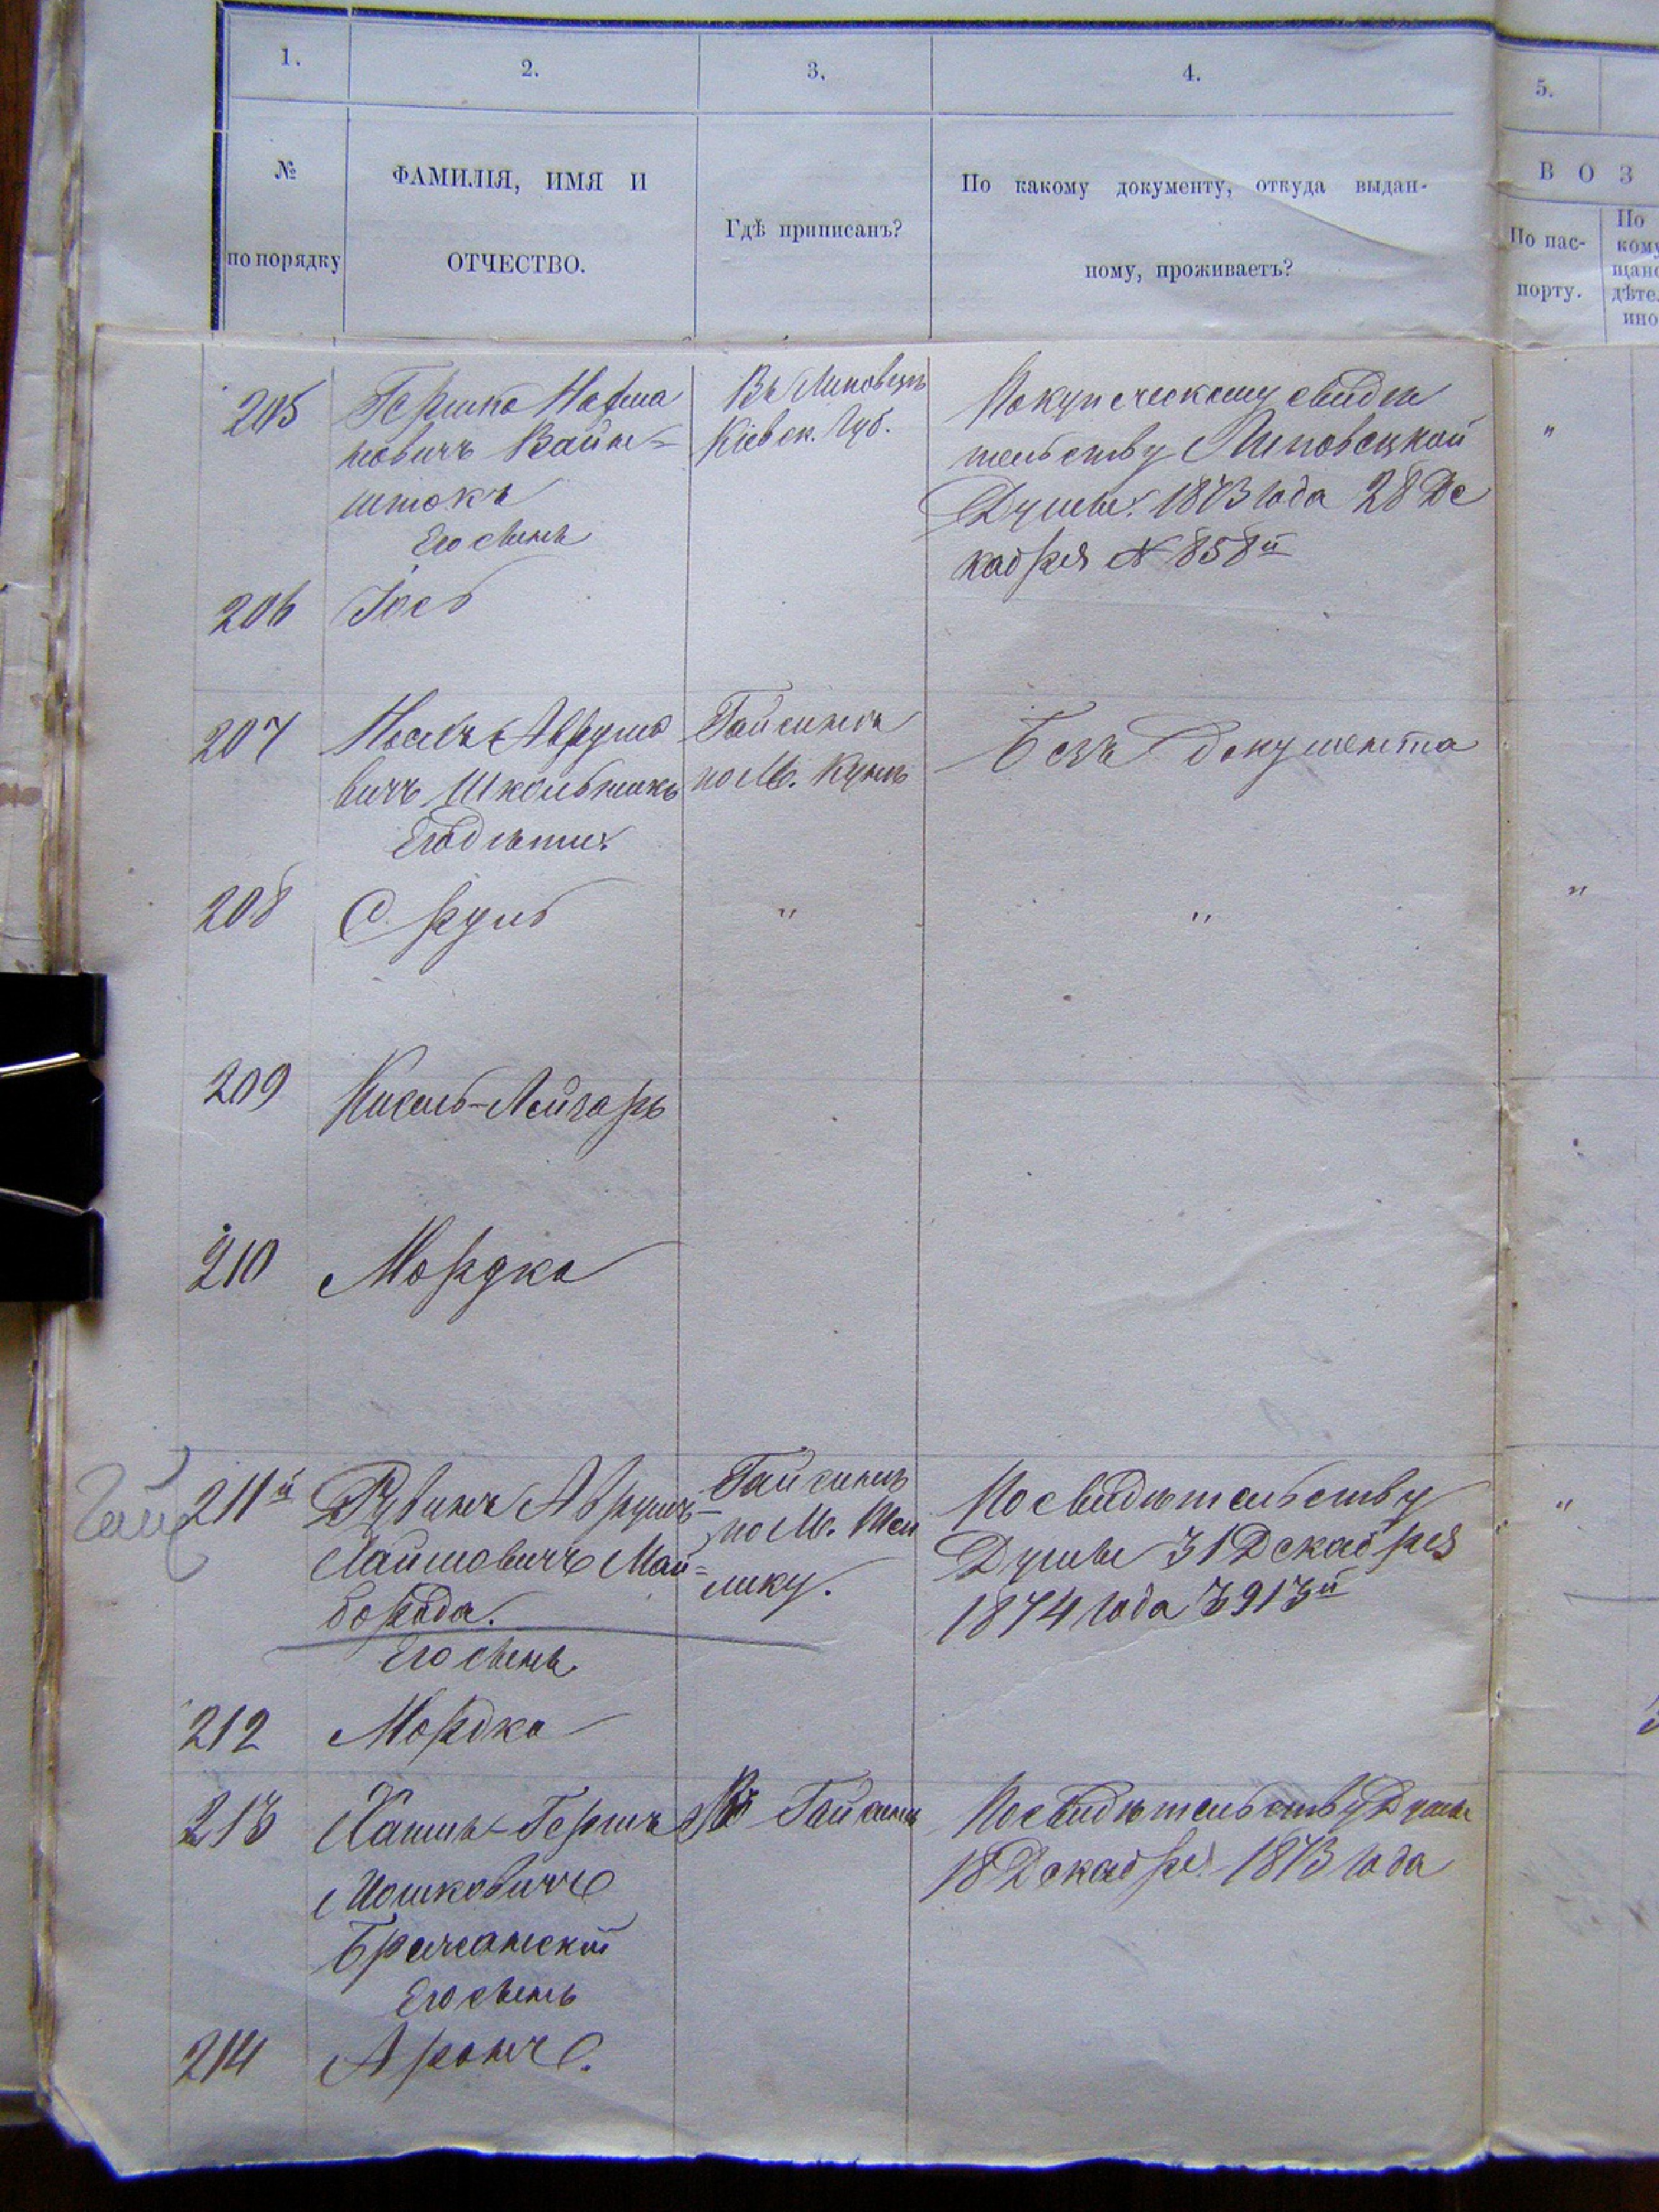 1. 2. 3. 4. 5.
№ по порядку
ФАМИЛІЯ, ИМЯ И
ОТЧЕСТВО.
Гдѣ приписанъ?
По какому документу, откуда выдан-
ному, проживаетъ?
В О З
По пас-
порту.
По
кому
щанс
дѣте
ино
205 Гершко Нафма
новичъ Вайн=
штокъ
Его сынъ
Въ Липовецъ
Кіевск. Губ.
По купеческому свидѣ
тельству Липовецкой
Думы 1873 года 28 Де
кабря № 858й
"
206 Іось
207 Аврумо
вичъ Школьникъ
Его дѣти
Гайсинъ
по М. Кунѣ
Безъ документа
208 Сруль " " "
209 Кисель-Лейзоръ
210 Мордко
Гай
211й Рувинъ Аврумъ-
Хаимовичъ Май=
борода.
Его сынъ
Гайсинъ
по М. Теп
лику.
По свидѣтельству
Думы 31 Декабря
1874 года 3913й
"
212 Мордко
213 Хаимъ-Гершъ
Мошковичъ
Бричанскій
Его сынъ
Гайсинъ
По свидѣтельству Думы
18 Декабря 1873 года
214 Аронъ.